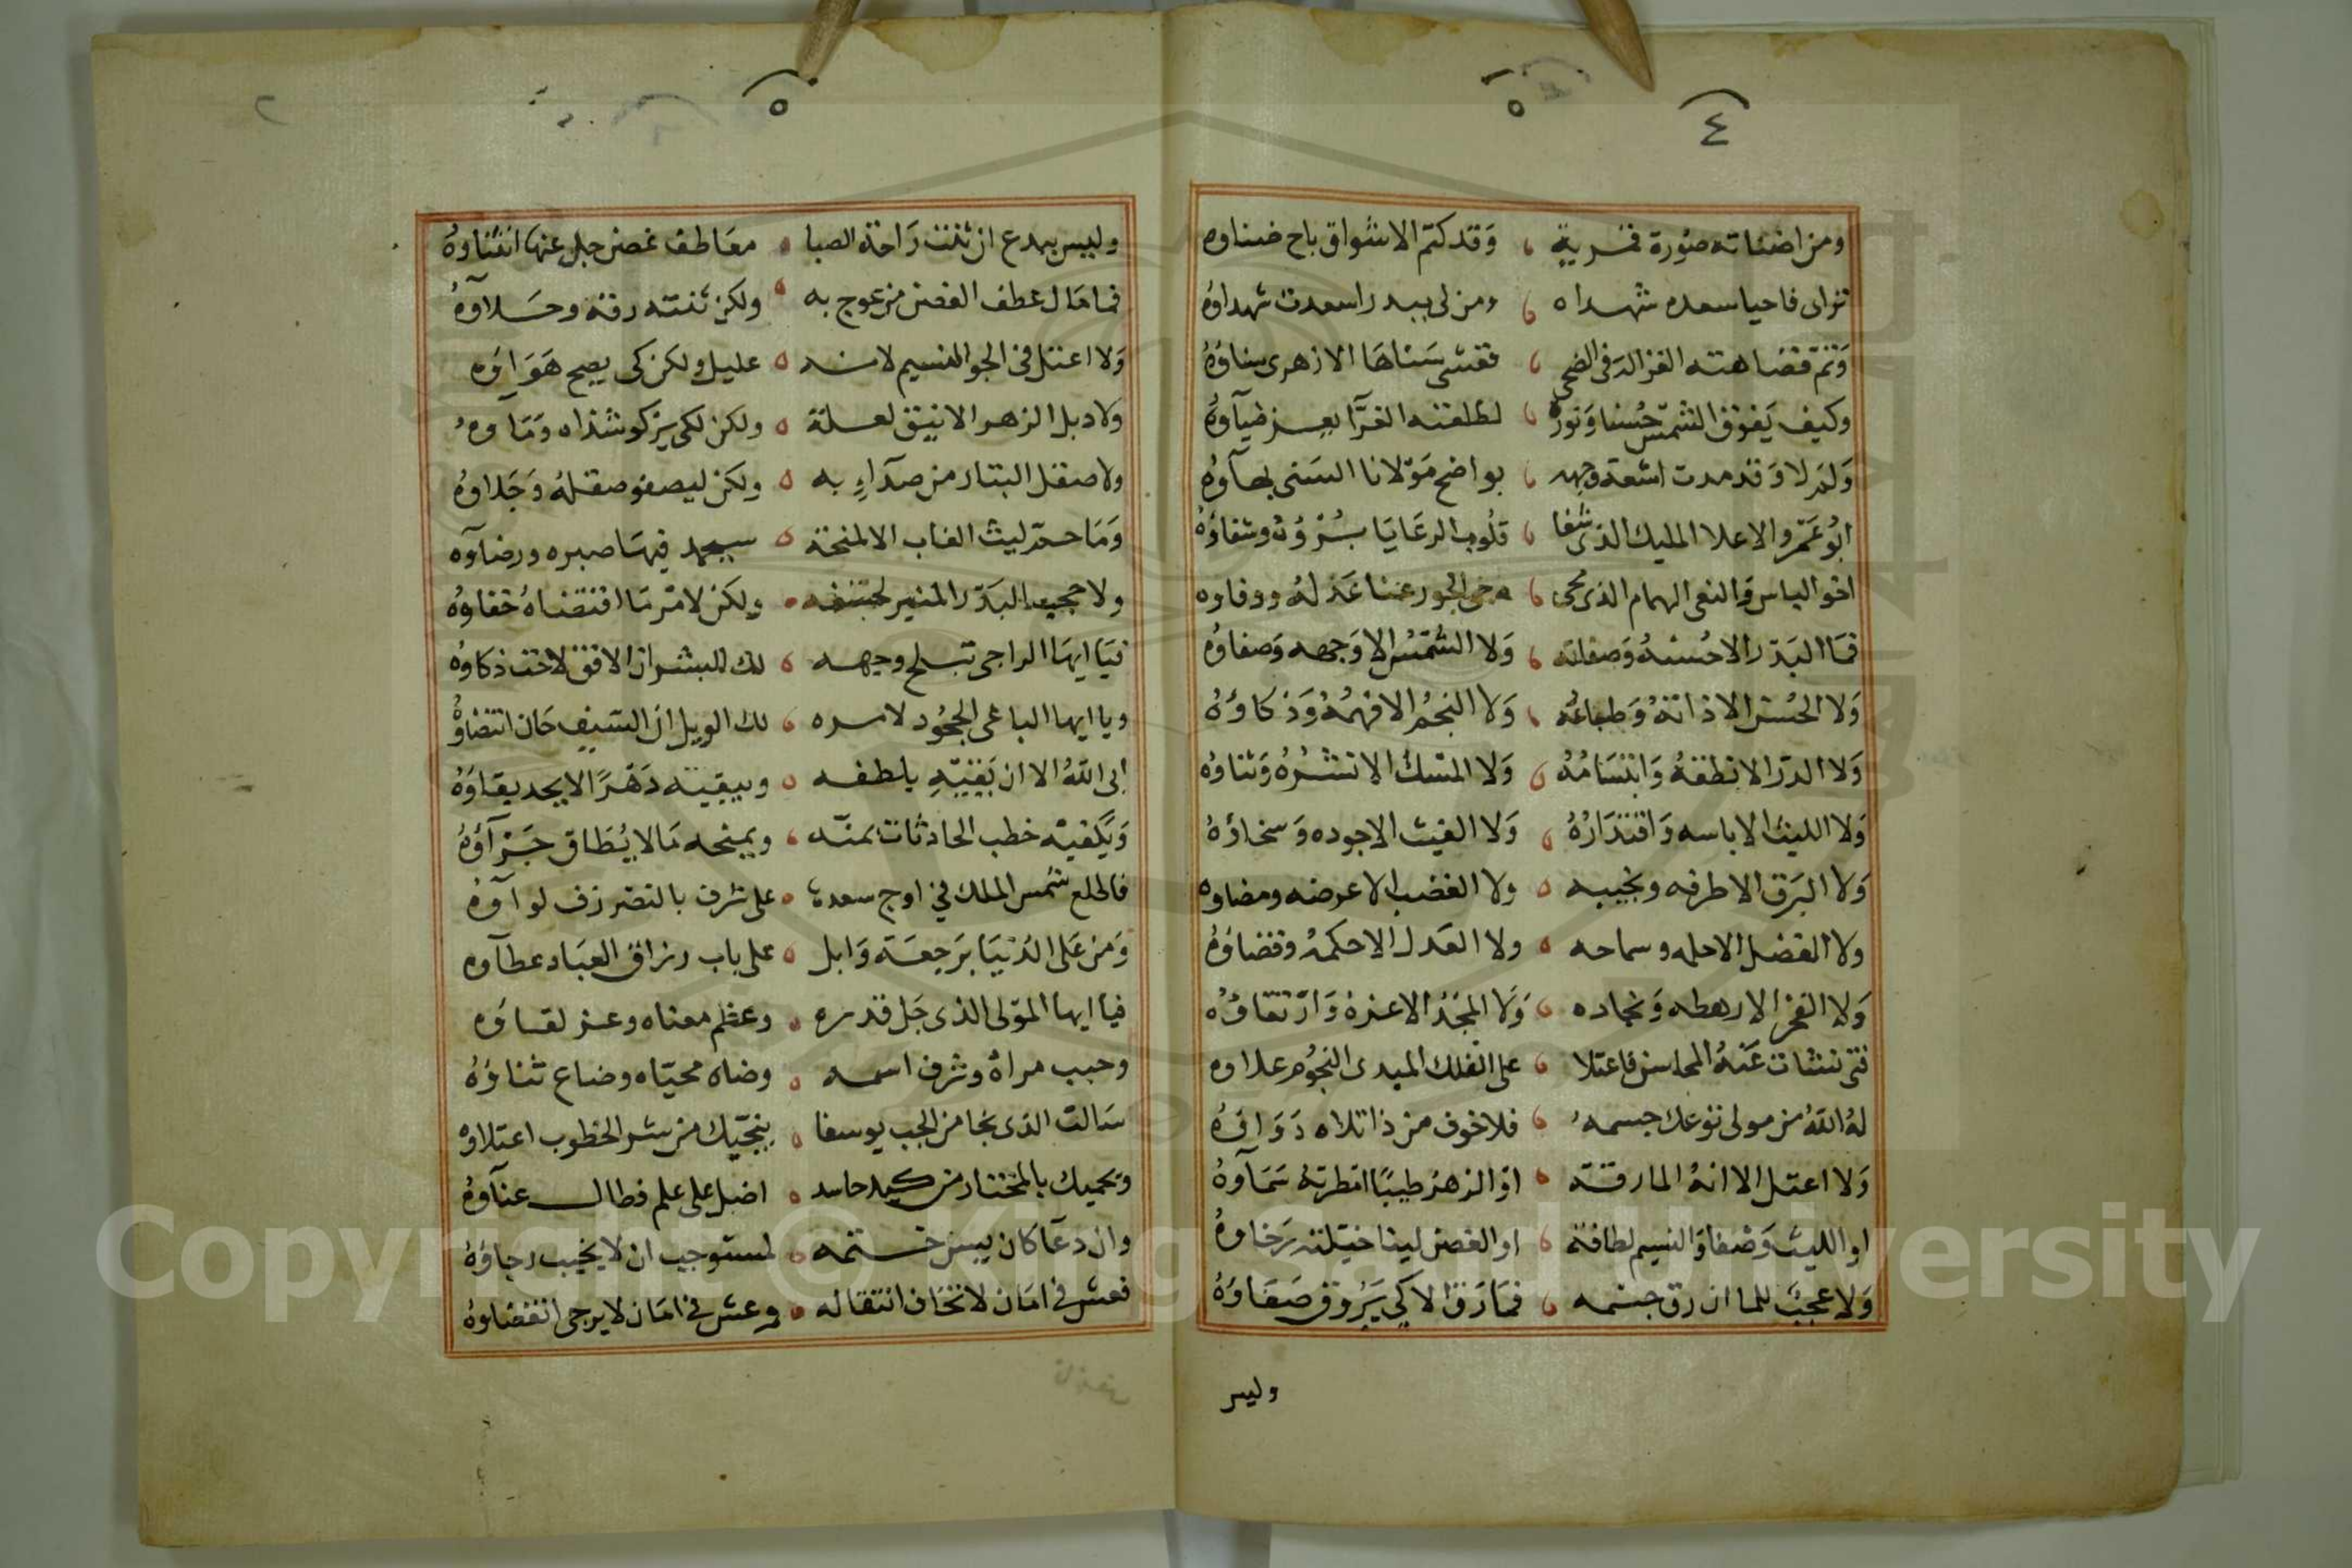 ٤
٥
ومن اضنىاته صورة قمرية وقد كتم الاشواق باح ضناوه
تراى فاحيا سعده شهداه ومن لى ببدر اسعدت شهداؤه
وتم فضاهته الغزالة فى الضحى فغشى سناها الازهرى سناؤه
وكيف يفوق الشمس حسنا ونوره لطلعته الغرآ يعز ضيآوه
ولم لا وقد مدت اشعة وجهه بواضح مولانا السنى بهآوه
ابو عمرو الاعلا المليك الذى شفا قلوب الرعايا بسؤوه وشفاؤه
اخو الباس والنعى الهمام الذى محى دجى الجور عنا عدله ووفاوه
فما البدر الا حسنه وصفاته ولا الشمس الا وجهه وصفاؤه
ولا الحسن الا ذاته وطباعه ولا النجم الا فهمه وذكاؤه
ولا الدر الا نطقه وابتسامه ولا المسك الا نشره وثناؤه
ولا الليث الا باسه واقتداره ولا الغيث الا جوده وسخاؤه
ولا البرق الا طرفه ونجيبه ولا العضب الا عرضه ومضاوه
ولا الفضل الا حلمه وسماحه ولا العدل الا حكمه وقضاؤه
ولا الفخر الا رهطه ونجاده ولا المجد الا عزه وارتقاؤه
فتى نشات عنه المحاسن فاعتلا على الفلك المبدى النجوم علاوه
له الله من مولى توعك جسمه فلا خوف من ذا تلاه دواؤه
ولا اعتل الا انه الما رقة او الزهر طيبا اقطرته سمآوه
او الليث وصفا والنسيم لطافة او الغصن لينا خيلته رخاوه
ولا عجب للما ان رق جسمه فما رق الا كي يروق صفاؤه
وليس
٥
وليس ببدع ان ثنت راحة الصبا معاطف غصن جل عنها انثناوه
فما مال عطف الغصن من عوج به ولكن ثنته رقة وحلاوه
ولا اعتل فى الجو النسيم لانه عليل ولكن كى يصح هواؤه
ولا ذبل الزهر الانيق لعلة ولكن لكى يزكو شذاه ومآوه
ولا صقل البتار من صدآء به ولكن ليصفو صقله وجلاوه
وما حم ليث الغاب الا لمنحة سيحمد فيها صبره ورضآوه
ولا حجب البدر المنير لخسفه ولكن لامر ما اقتضاه خفاؤه
فيا ايها الراجى تبلج وجهه لك البشر ان الافق لاحت ذكاؤه
ويا ايها الباغى الجحود لامره لك الويل ان السيف حان انتضاؤه
ابى الله الا ان يقيه بلطفه ويبقيه دهرا لا يحد بقاؤه
ويكفيه خطب الحادثات بمنه ويمنحه ما لا يطاق جزآؤه
فاطلع شمس الملك في اوج سعده على شرف بالنصر زف لوآوه
ومن على الدنيا برجعة وابل على باب رزاق العباد عطآوه
فيا ايها المولى الذى جل قدره وعظم معناه وعز لقاؤه
وحبب مراه وشرف اسمه وضاه محياه وضاع ثناؤه
سالت الذى نجا من الجب يوسفا ينجيك من شر الخطوب اعتلاوه
ويحميك بالمختار من كيد حاسد اضل على علم فطال عنآوه
وان دعآ كان يس ختمه لمستوجب ان لا يخيب رجاؤه
فعش في امان لا تخاف انتقاله وعش في امان لا يرجى انقضاوه
Copyright © King Saud University